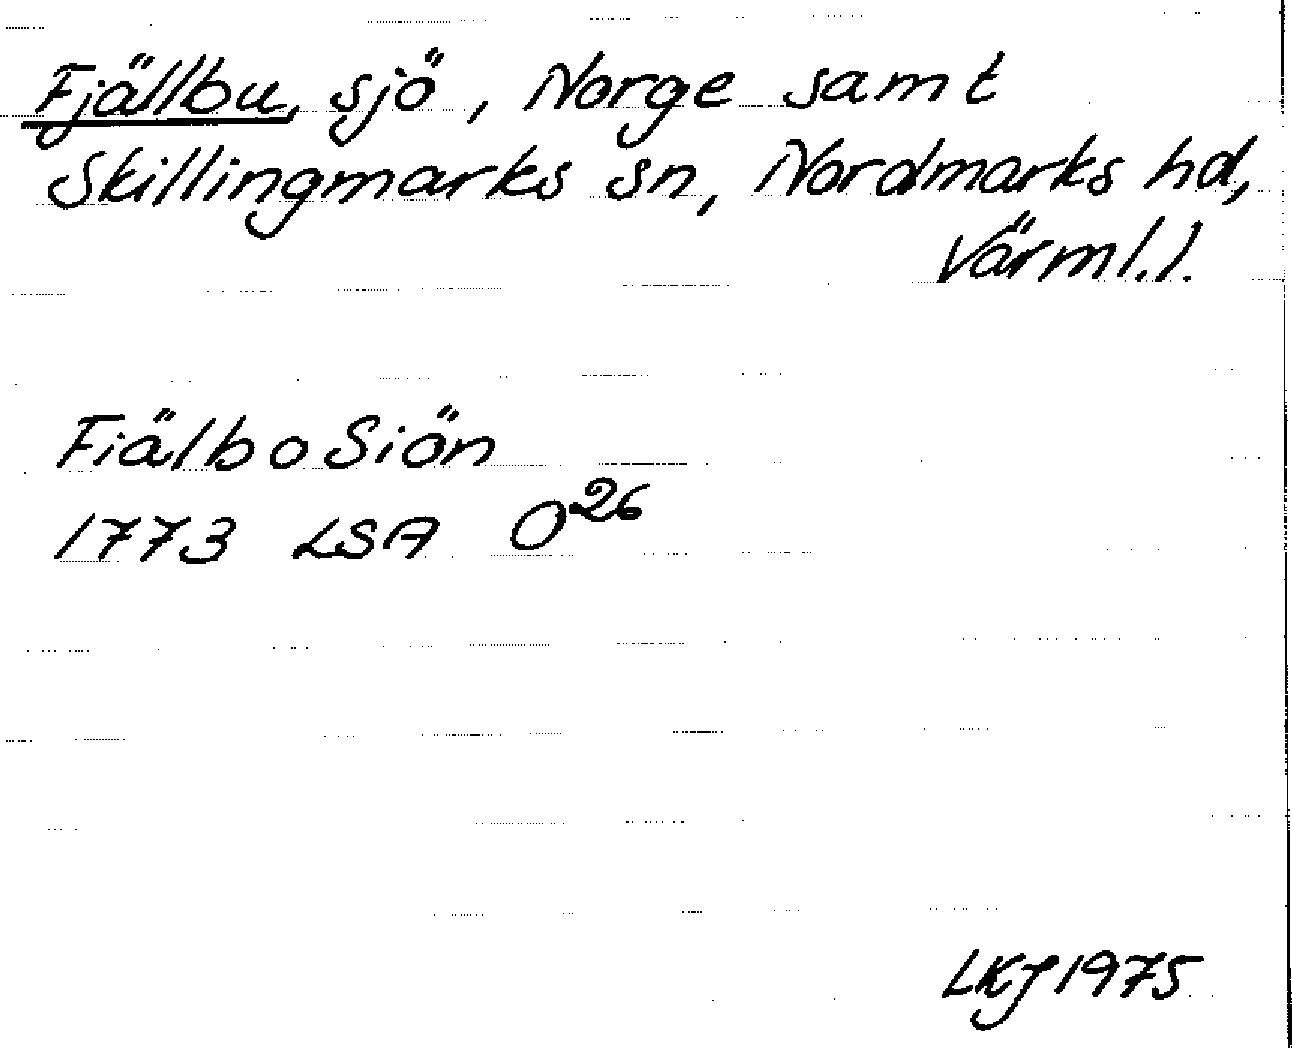 Fjällbu, sjö, Norge samt
Skillingmarks sn, Nordmarks hd,
Värml.l.
FiälboSiön
1773 LSA O²⁶
LKJ 1975